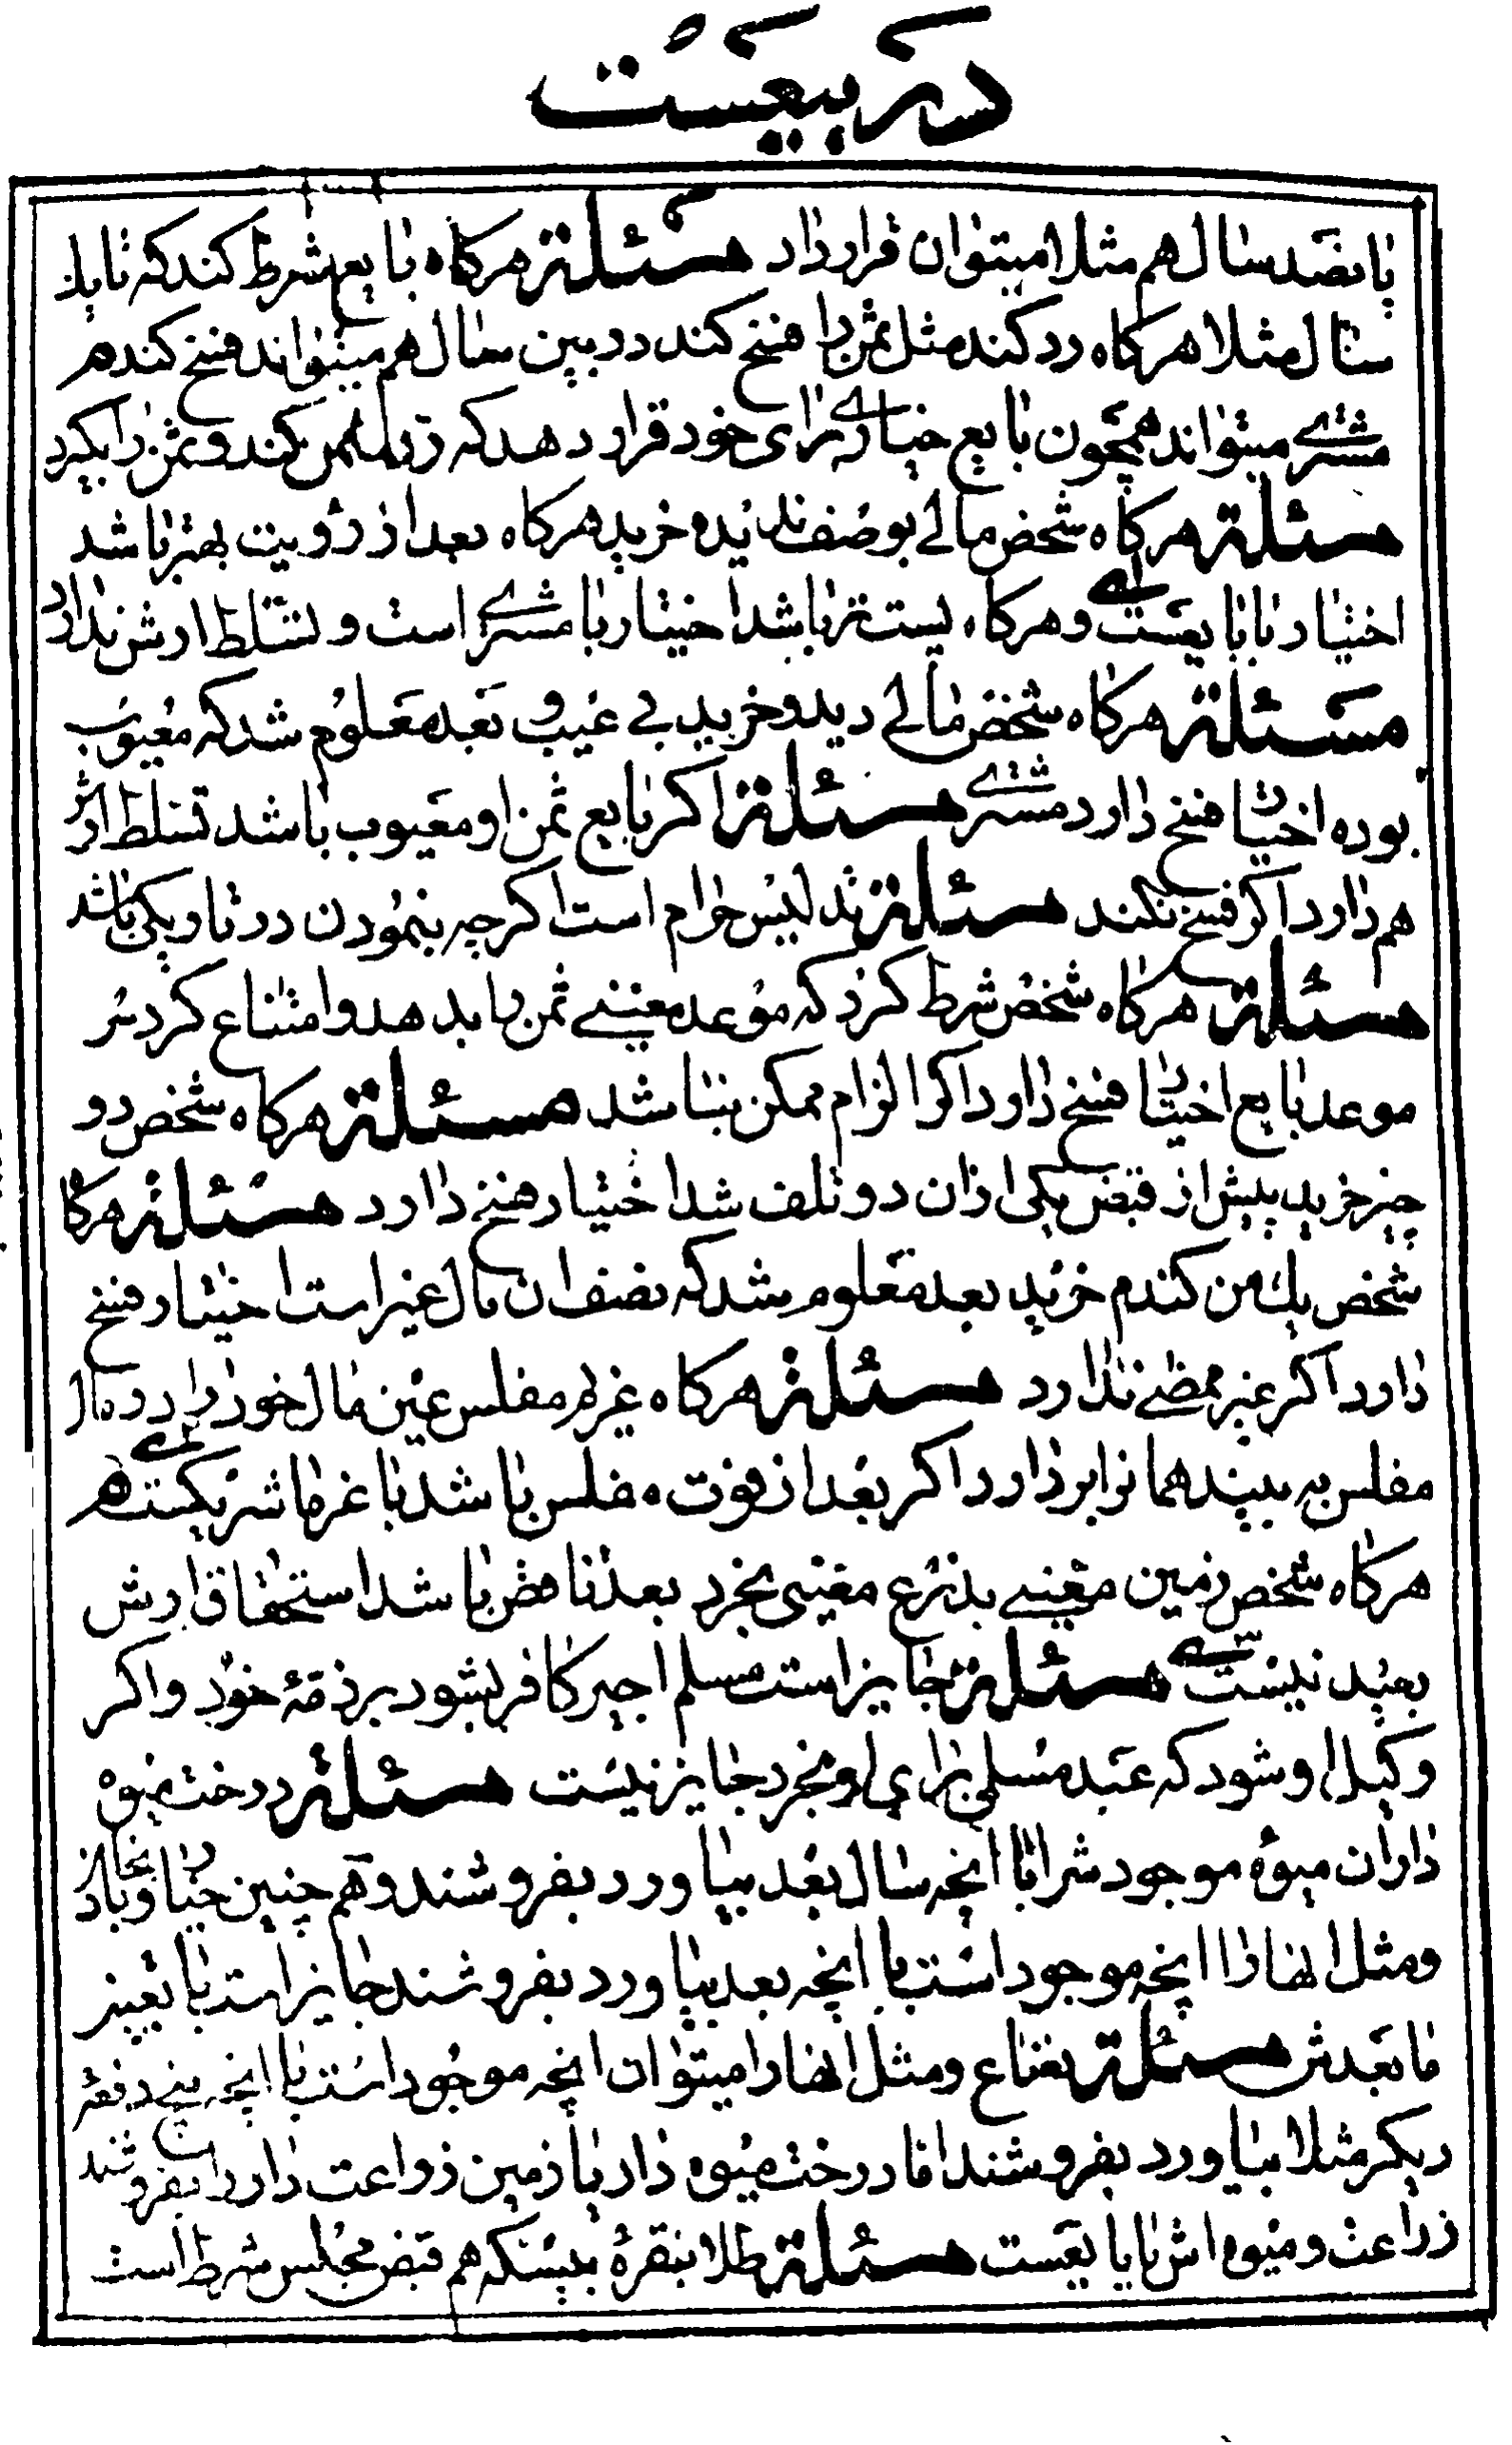 در بیعست
پانصد سال هم مثلا میتوان قرار داد مسئلة هرکاه بایع شرط کند که تا یك
سال مثلا هرکاه رد کند مثل ثمن را فسخ کند در بین سال هم میتواند فسخ کند هم
مشتری میتواند همچون بایع خیاری برای خود قرار دهد که رد مثمن کند و ثمن را بکیرد
مسئلة هرکاه شخص مالی بوصف ندیده خرید هرکاه بعد از رؤیت بهتر باشد
اختیار با بایعست و هرکاه پست تر باشد اختیار با مشتری است و تسلط ارش ندارد
مسئلة هرکاه شخص مالی دید و خرید بی عیب و بعد معلوم شد که معیوب
بوده اختیار فسخ دارد مشتری مسئلة اکر بایع ثمن او معیوب باشد تسلط ارش
هم دارد اکر فسخ نکند مسئلة تدلیس حرام است اکرچه بنمودن در تاریکی باشد
مسئلة هرکاه شخص شرط کرد که موعد معینی ثمن را بدهد و امتناع کرد سر
موعد بایع اختیار فسخ دارد اکر الزام ممکن نباشد مسئلة هرکاه شخص دو
چیز خرید پیش از قبض یکی از ان دو تلف شد اختیار فسخ دارد مسئلة هرکاه
شخص یك من کندم خرید بعد معلوم شد که نصف ان مال غیر است اختیار فسخ
دارد اکر غیر ممضی ندارد مسئلة هرکاه غریم مفلس عین مال خود را در مال
مفلس به بیند همانرا بر دارد اکر بعد از فوت مفلس باشد با غرما شریکست م
هرکاه شخص زمین معینی بذرع معینی بخرد بعد ناقص باشد استحقاق ارش
بعید نیست مسئلة جایز است مسلم اجیر کافر بشود بر ذمهٔ خود و اکر
وکیل او شود که عبد مسلمی برای او بخرد جایز نیست مسئلة درخت میوه
داران میوهٔ موجودش را با انچه سال بعد بیاورد بفروشند و هم چنین خیار و بادنجان
و مثل انها را انچه موجود است با انچه بعد بیاورد بفروشند جایز است با تعیین
ما بعدش مسئلة نعناع و مثل انها را میتوان انچه موجود است با انچه دفعهٔ
دیکر مثلا بیاورد بفروشند اما درخت میوه دار یا زمین زراعت دار را بفروشند
زراعت و میوه اش با بایعست مسئلة طلا بنقرهٔ بیسکه هم قبض مجلس شرط است